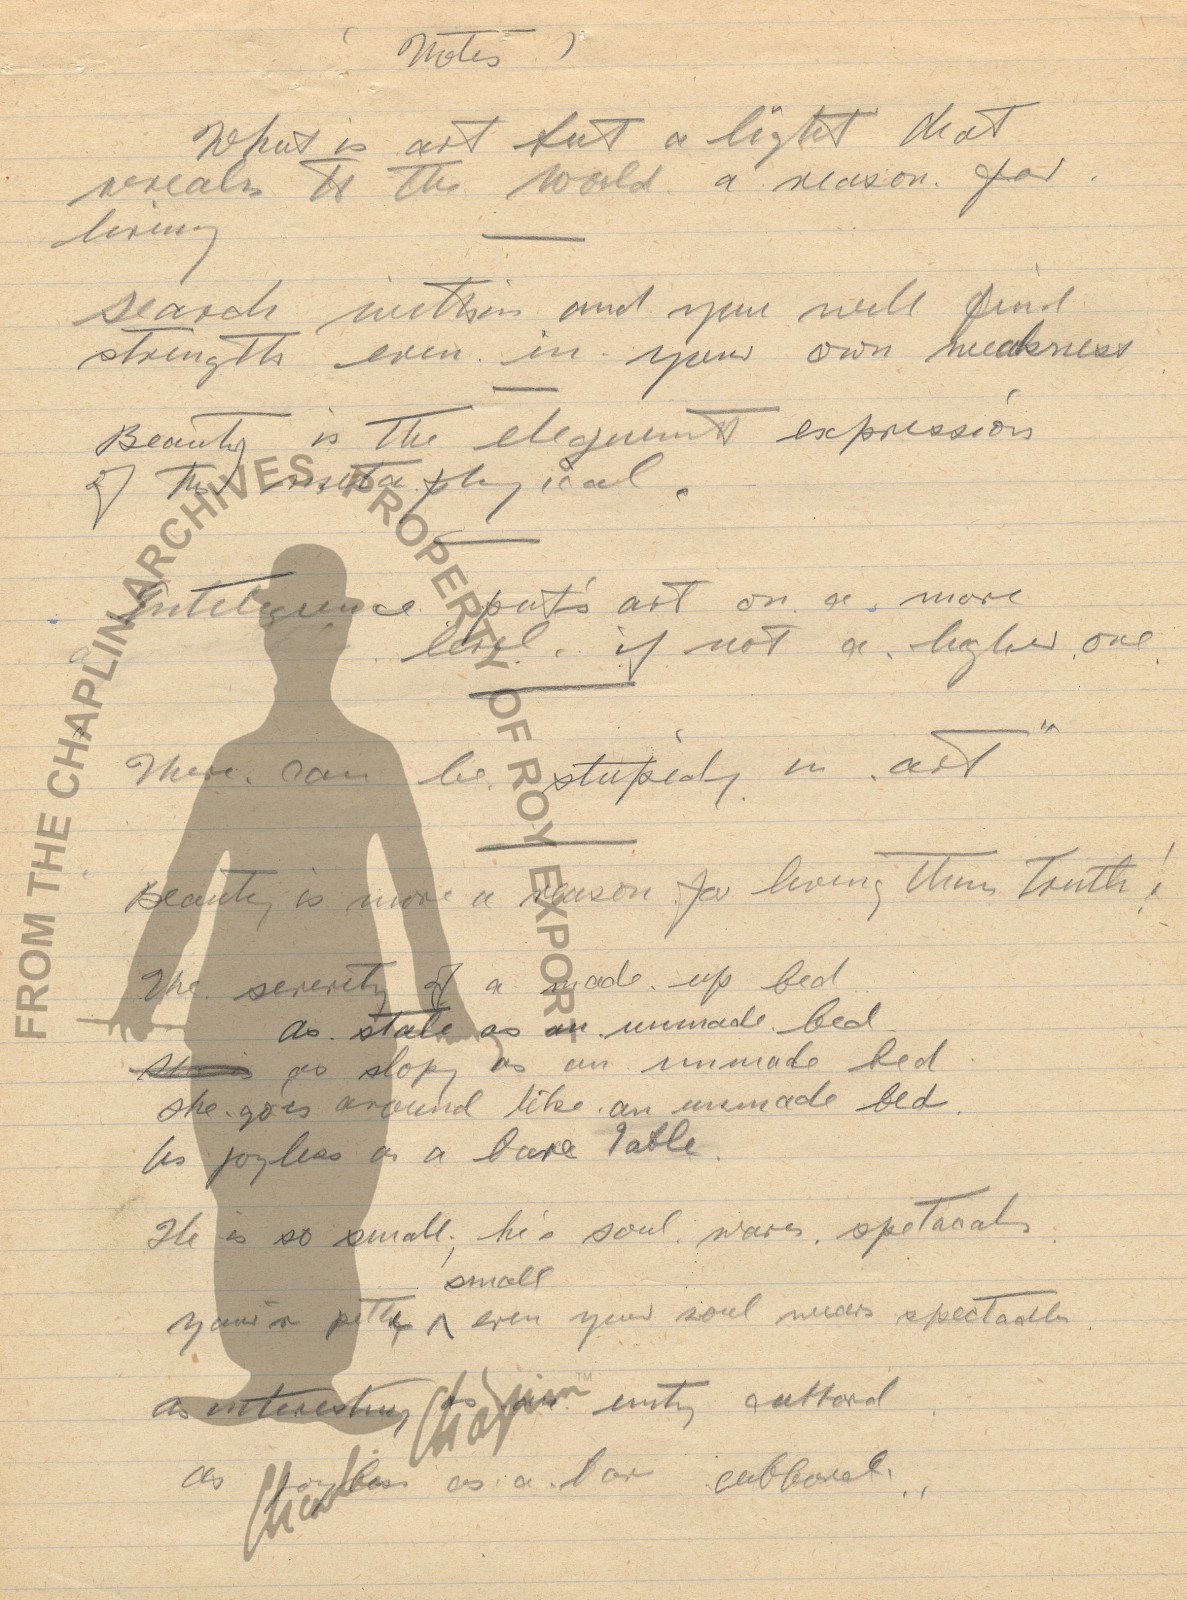 ( Notes )
What is art but a light that
reveals to the world a reason for
living
Search within and you will find
strength even in your own weakness
Beauty is the elequent expression
of the meta physical.
Intelegence put's art on a more
level. if not a higher one
There can be stupidy in art"
Beauty is more a reason for living than truth!
The severity of a made up bed
as stale as an unmade bed
as slopy as an unmade bed
she goes around like an unmade bed.
As joyless as a bare table.
He is so small, his soul wares spetacals
small
your so petty even your soul wears spectacles
as interesting as an emty cubbord
as joyless as a bar cubbord.
FROM THE CHAPLIN ARCHIVES, PROPERTY OF ROY EXPORT
Charlie Chaplin™